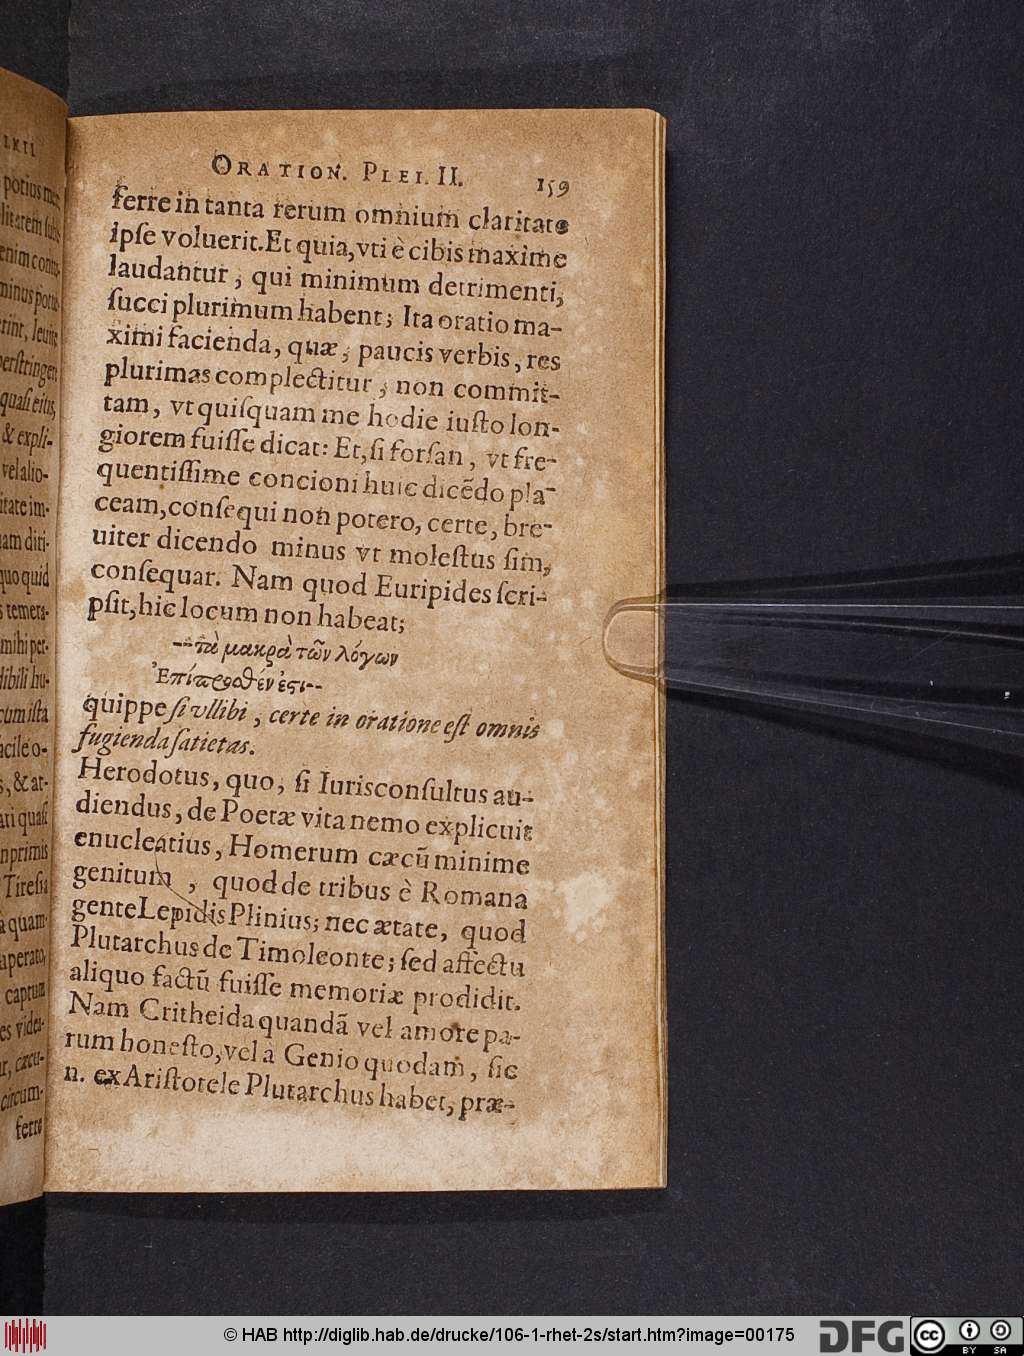 ORATION. PLEI. II. 159
ferre in tanta rerum omnium claritate
ipſe voluerit. Et quia, vti è cibis maxime
laudantur, qui minimum detrimenti,
ſucci plurimum habent; Ita oratio ma-
ximi facienda, quæ, paucis verbis, res
plurimas complectitur, non commit-
tam, vt quiſquam me hodie iuſto lon-
giorem fuiſſe dicat: Et, ſi forſan, vt fre-
quentiſſime concioni huic dicẽdo pla-
ceam, conſequi non potero, certe, bre-
uiter dicendo minus vt moleſtus ſim,
conſequar. Nam quod Euripides ſcri-
pſit, hic locum non habeat;
--τὰ μακρὰ τῶν λόγων
Ἐπίπροθέν ἐϛι--
quippe ſi vllibi, certe in oratione eſt omnis
fugienda ſatietas.
Herodotus, quo, ſi Iurisconſultus au-
diendus, de Poetæ vita nemo explicuit
enucleatius, Homerum cæcũ minime
genitum, quod de tribus è Romana
gente Lepidis Plinius; nec ætate, quod
Plutarchus de Timoleonte; ſed affectu
aliquo factũ fuiſſe memoriæ prodidit.
Nam Critheida quandã vel amore pa-
rum honeſto, vel à Genio quodam, ſic
n. ex Ariſtotele Plutarchus habet, præ-
potius
enim
perſtringen
quaſi eius,
& expli-
vel alio-
itate im-
quo quid
mihi per-
dibili hu-
cum iſta
acile o-
s, & at-
ati quaſi
nprimis
Tireſia
à quam
uperato,
captum
circum-
ferre
© HAB http://diglib.hab.de/drucke/106-1-rhet-2s/start.htm?image=00175
DFG
cc BY SA